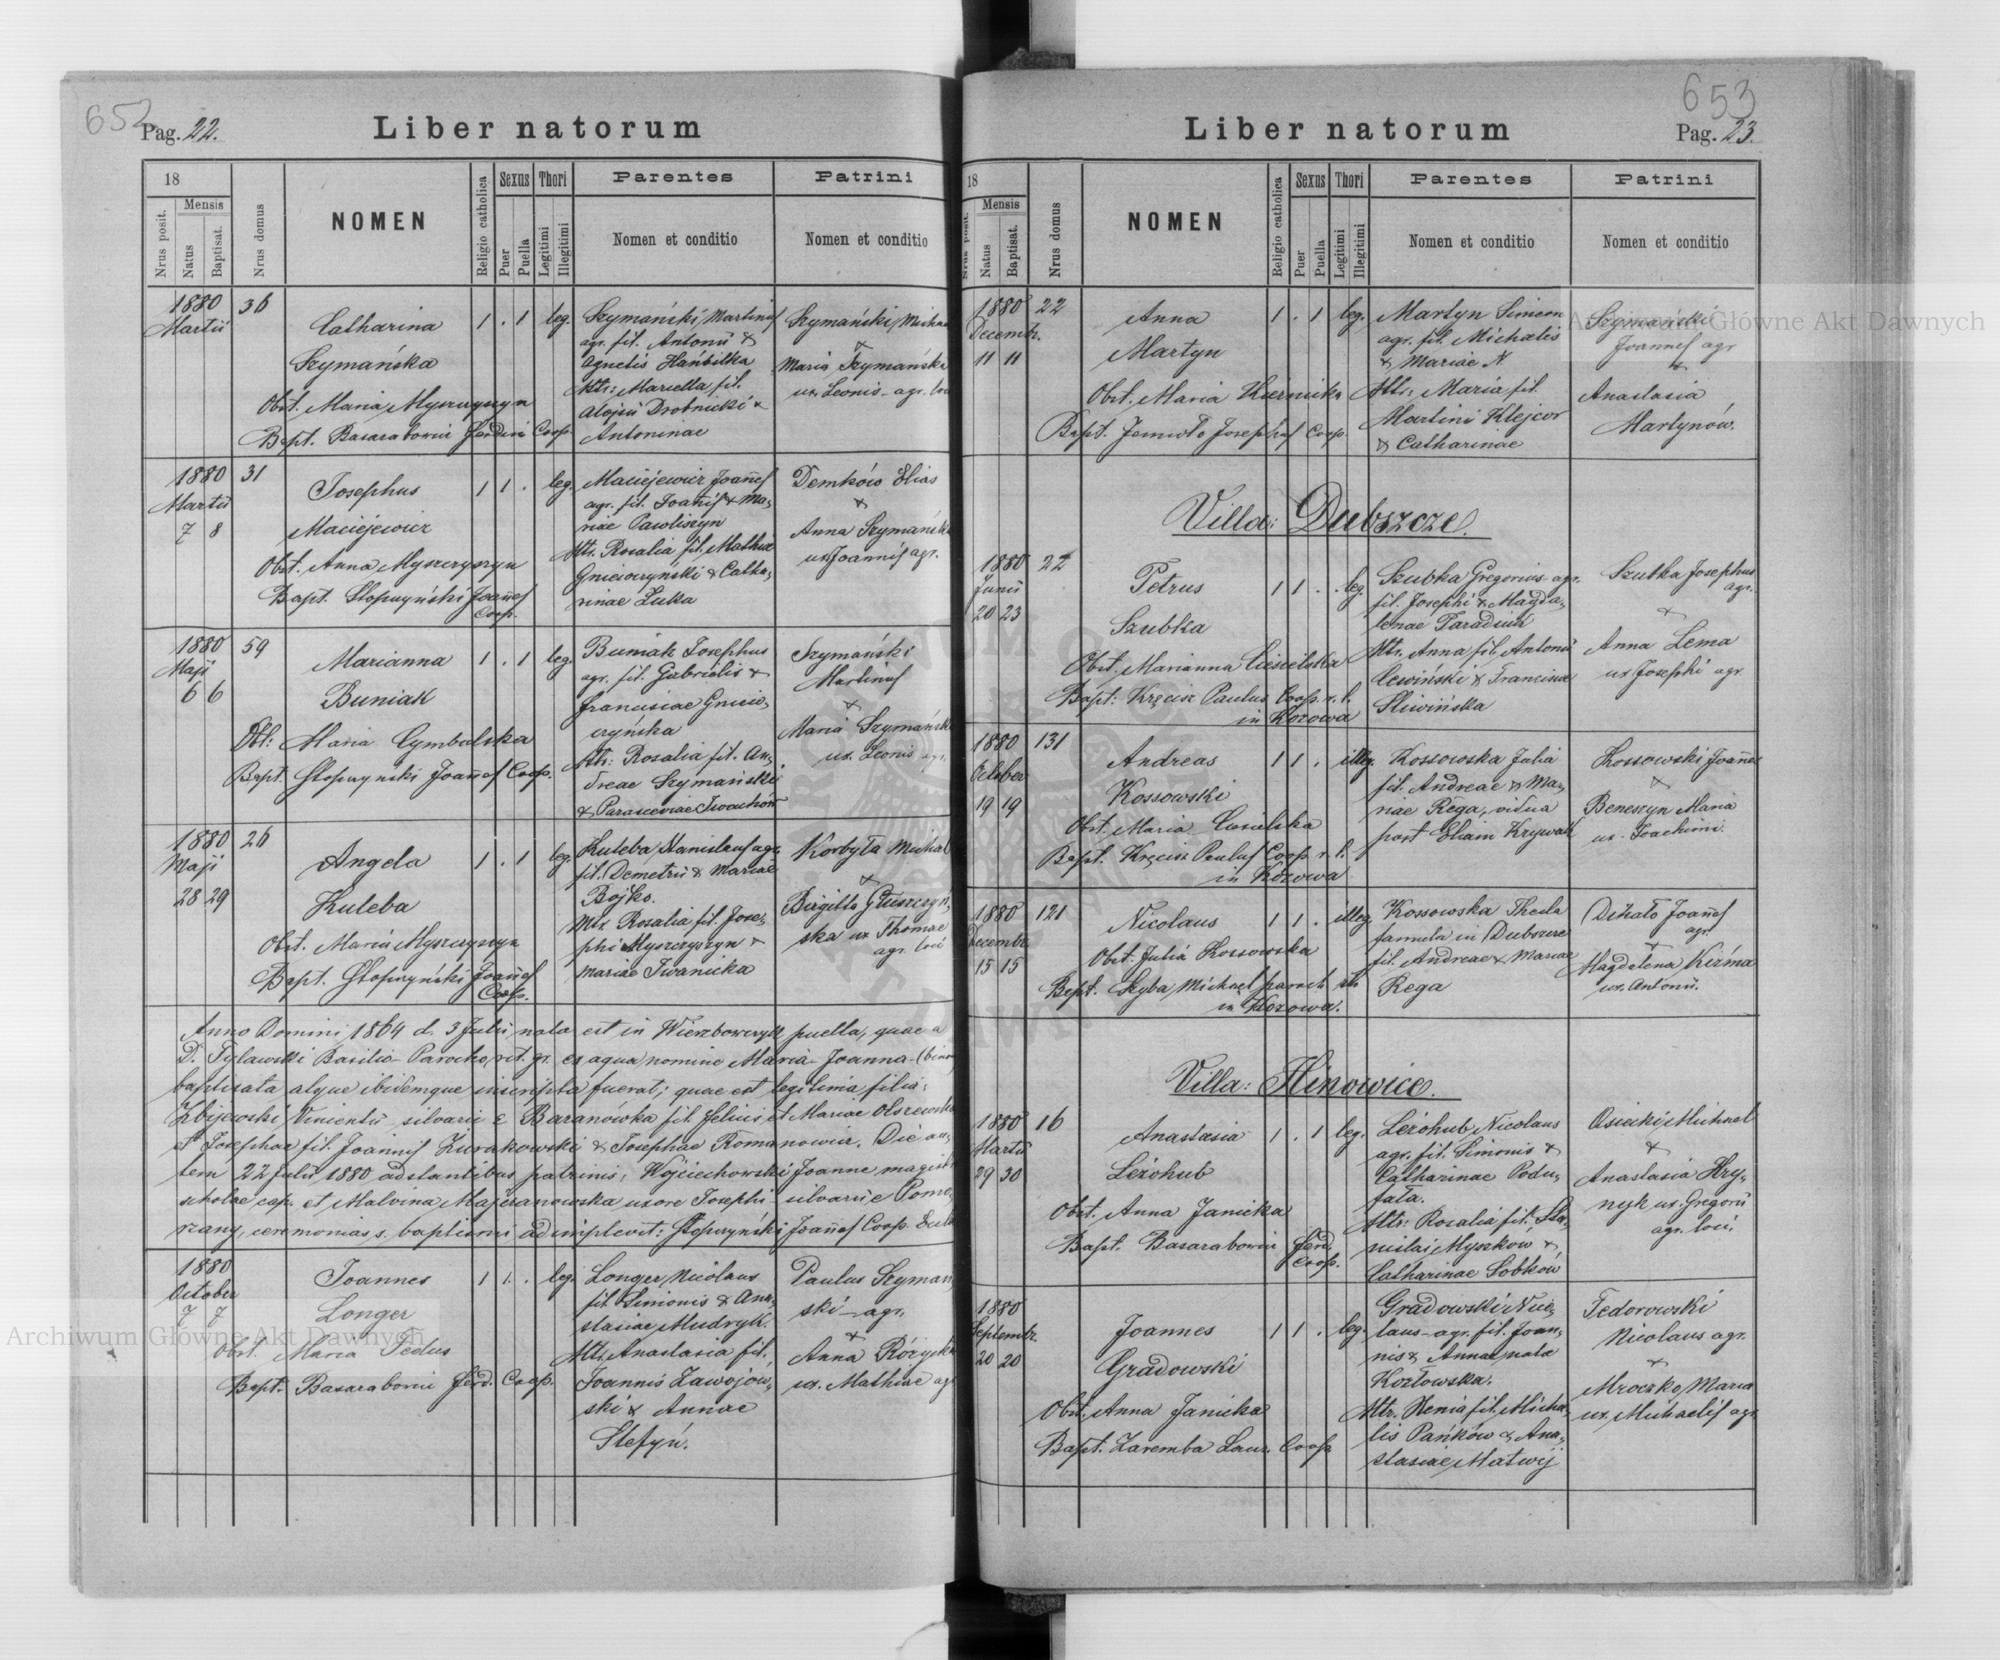 652
Pag. 22.
Liber natorum
18
Mensis
Nrus posit.
Natus
Baptisat.
Nrus domus
NOMEN
Religio catholica
Sexus
Puer
Puella
Thori
Legitimi
Illegitimi
Parentes
Nomen et conditio
Patrini
Nomen et conditio
1880 36
Martii
Catharina 1 . 1 leg.
Szymańska
Obst. Maria Myszczyszyn
Bapt. Basarabowicz Coop.
Szymański Martinus
agr. fil. Antonii &
Agnetis Hańbilka
Mtr: Mariella fil.
Aloisii Drobnicki &
Antoninae
Szymański
&
Maria Szymańska
ux. Leonis agr.
1880 31
Martii
7 8
Josephus 1 1 . leg.
Maciejewicz
Obst. Anna Myszczyszyn
Bapt. Słopczyński Joannes
Coop.
Maciejewicz Joannes
agr. fil. Joannis & Ma-
riae Pawliszyn
Mtr. Rosalia fil. Mathiae
& Catha-
rinae Zuka
Demków Elias
&
Anna Szymańska
ux Joannis agr.
1880 59
Maji
6 6
Marianna 1 . 1 leg.
Buniak
Obst: Maria Cymbalska
Bapt. Słopczyński Joannes Coop.
Buniak Josephus
agr. fil. Gabrielis &
Franciscae Gniew-
czyńska
Mtr: Rosalia fil. An-
dreae Szymański
& Parasceviae Iwachów
Szymański
Martinus
&
Maria Szymańska
ux. Leonis agr.
1880 26
Maji
28 29
Angela 1 . 1 leg.
Kuleba
Obst. Maria Myszczyszyn
Bapt. Słopczyński Joannes
Coop.
Kuleba Stanislaus agr.
fil. Demetrii & Mariae
Bojko.
Mtr. Rosalia fil. Jose-
phi Myszczyszyn &
Mariae Iwanicka
Korbyła Michal
&
Birgitta Głuszczyń-
ska ux Thomae
agr. loci
Anno Domini 1864 d. 3 Julii, nata est in Wierzbowczyk puella, quae a
D. Tylawski Basilio Parocho rit. gr. ex aqua nomine Maria Joanna
baptisata atque ibidemque inscripta fuerat; quae est legitima filia:
Zbijewski Vincentii silvarii e Baranówka fil. Felicis et Mariae Olszewska
et Josephae fil. Joannis Zurakowski & Josephae Romanowicz. Die au-
tem 22 Julii 1880 adstantibus patrinis, Wojciechowski Joanne magistr
scholae cap. et Malvina Majeranowska uxore Josephi silvarii e Pomo-
rzany, ceremonias s. baptismi adimplevit: Słopczyński Joannes Coop.
1880
October
7 7
Joannes 1 1 . leg.
Longer
Obst. Maria Fedus
Bapt. Basarabowicz Ferd. Coop.
Longer Nicolaus
fil. Simionis & Ana-
stasiae Mudryk.
Mtr. Anastasia fil.
Joannis Zawojow-
ski & Annae
Stefyń.
Paulus Szymań-
ski agr.
&
Anna Różycka
ux. Mathiae agr
653
Pag. 23.
Liber natorum
18
Mensis
Nrus posit.
Natus
Baptisat.
Nrus domus
NOMEN
Religio catholica
Sexus
Puer
Puella
Thori
Legitimi
Illegitimi
Parentes
Nomen et conditio
Patrini
Nomen et conditio
1880 22
Decembr.
11 11
Anna 1 . 1 leg.
Martyn
Obst. Maria Kiernicka
Bapt. Jemioło Josephus Coop.
Martyn Simeon
agr. fil. Michaelis
& Mariae N
Mtr: Maria fil.
Martini Klejcor
& Catharinae
Szymański
Joannes agr
&
Anastasia
Martynów.
Villa: Dubszcze.
1880 22
Junii
20 23
Petrus 1 1 . leg.
Szubka
Obst. Marianna Cisielska
Bapt: Kręcisz Paulus Coop r. l.
in Kozowa
Szubka Gregorius agr.
fil. Josephi & Magda-
lenae Paraduik
Mtr. Anna fil. Antonii
Lewiński & Franciscae
Śliwińska
Szubka Josephus
agr.
&
Anna Lema
ux Josephi agr.
1880 131
October
19 19
Andreas 1 1 . illeg.
Kossowski
Obst. Maria Cisielska
Bapt. Kręcisz Paulus Coop r. l.
in Kozowa
Kossowska Julia
fil. Andreae & Ma-
riae Rega, vidua
post Eliam Krywak
Kossowski Joannes
&
Beneszyn Maria
ux. Joachimi
1880 121
Decembr.
15 15
Nicolaus 1 1 . illeg.
Obst. Julia Kossowska
Bapt. Szyba Michael paroch.
in Kozowa.
Kossowska Thecla
famula in Dubszcze
fil. Andreae & Mariae
Rega
Dihało Joannes
agr.
&
Magdalena Kiźma
ux. Antonii.
Villa: Hinowice.
1880 16
Martii
29 30
Anastasia 1 . 1 leg.
Leżohub
Obst. Anna Janicka
Bapt. Basarabowicz Ferd.
Coop.
Leżohub Nicolaus
agr. fil. Simonis &
Catharinae Podu-
fała.
Mtr: Rosalia fil. Sta-
nislai Myszków &
Catharinae Sobków
Osiecki Michael
&
Anastasia Hry-
nyk ux. Gregorii
agr. loci.
1880
Septembr.
20 20
Joannes 1 1 . leg.
Gradowski
Obst. Anna Janicka
Bapt. Zaremba Laur. Coop
Gradowski Nico-
laus agr. fil. Joan-
nis & Annae nata
Kozłowska.
Mtr. Xenia fil. Micha-
lis Pańków & Ana-
stasiae Matwij
Fedorowski
Nicolaus agr.
&
Mroczko Maria
ux. Michaelis agr.
Archiwum Główne Akt Dawnych
Archiwum Główne Akt Dawnych